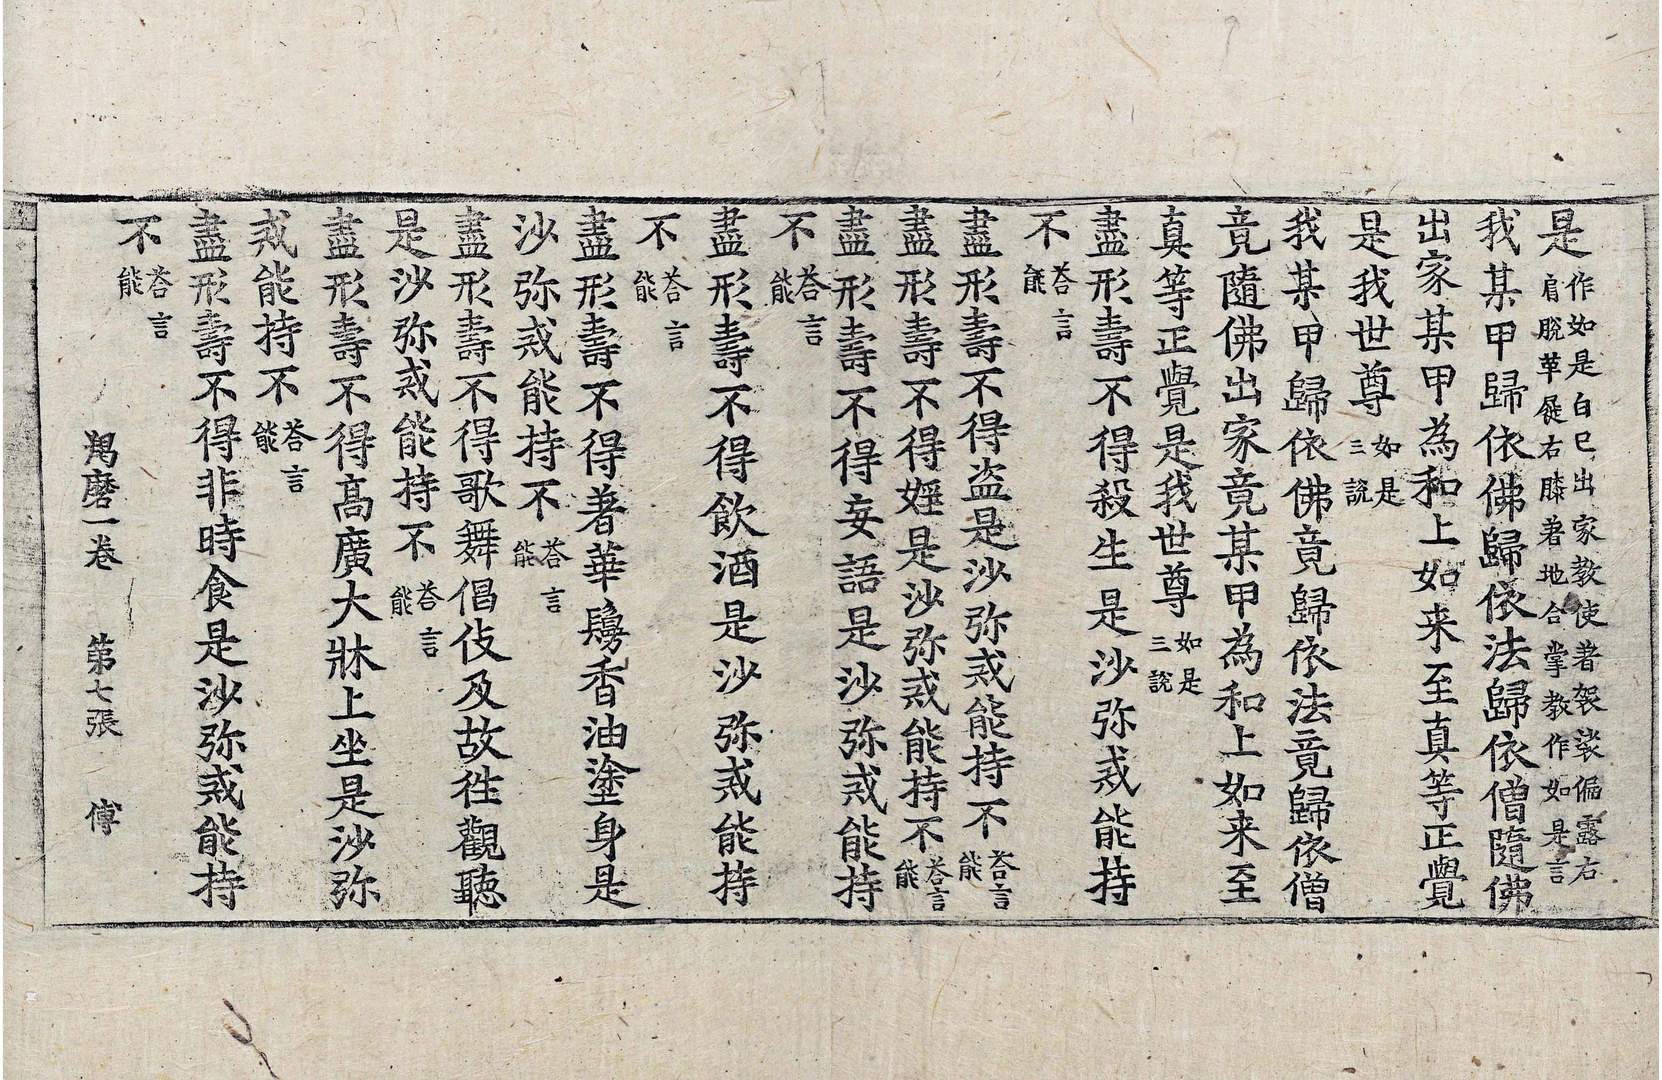 是作如是白已出家教使著袈裟偏露右肩脫革屣右膝著地合掌教作如是言
我某甲歸依佛歸依法歸依僧隨佛
出家某甲為和上如来至真等正覺
是我世尊如是三說
我某甲歸依佛竟歸依法竟歸依僧
竟隨佛出家竟某甲為和上如来至
真等正覺是我世尊如是三說
盡形壽不得殺生是沙弥戒能持
不答言能
盡形壽不得盗是沙弥戒能持不答言能
盡形壽不得婬是沙弥戒能持不答言能
盡形壽不得妄語是沙弥戒能持
不答言能
盡形壽不得飲酒是沙弥戒能持
不答言能
盡形壽不得著華鬘香油塗身是
沙弥戒能持不答言能
盡形壽不得歌舞倡伎及故徃觀聽
是沙弥戒能持不答言能
盡形壽不得高廣大牀上坐是沙弥
戒能持不答言能
盡形壽不得非時食是沙弥戒能持
不答言能
羯磨一卷 第七張 傅